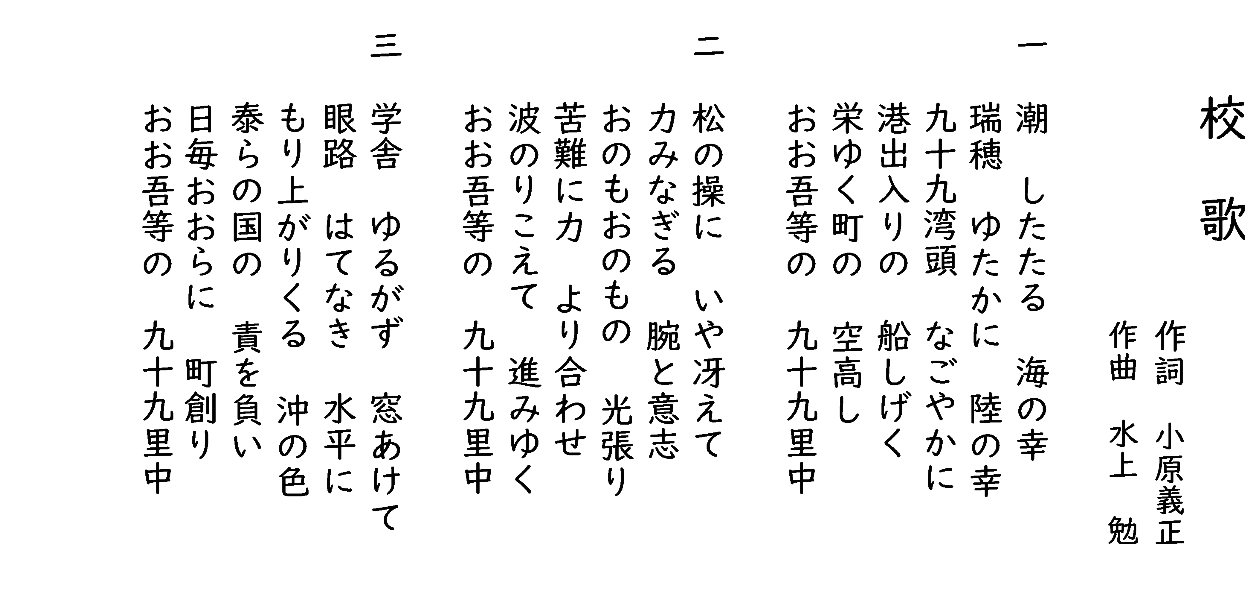 校 歌
作詞 小原義正
作曲 水上 勉
一
潮 したたる 海の幸
瑞穂 ゆたかに 陸の幸
九十九湾頭 なごやかに
港出入りの 船しげく
栄ゆく町の 空高し
おお吾等の 九十九里中
二
松の操に いや冴えて
力みなぎる 腕と意志
おのもおのもの 光張り
苦難に力 より合わせ
波のりこえて 進みゆく
おお吾等の 九十九里中
三
学舎 ゆるがず 窓あけて
眼路 はてなき 水平に
もり上がりくる 沖の色
泰らの国の 責を負い
日毎おおらに 町創り
おお吾等の 九十九里中